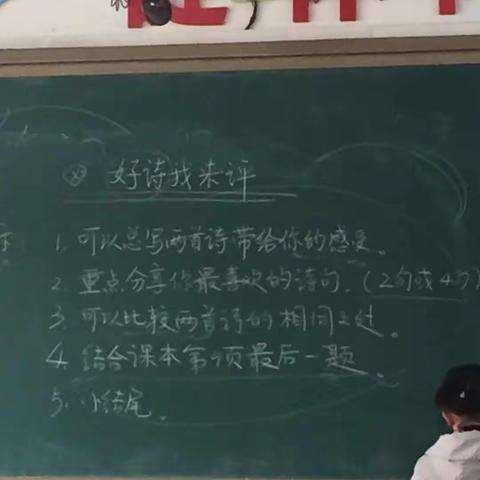 好诗我来评
1. 可以总写两首诗带给你的感受。
2. 重点分享你最喜欢的诗句.(2句或4句)
3. 可以比较两首诗的相同之处。
4. 结合课本第9页最后一题。
5. 小结尾。